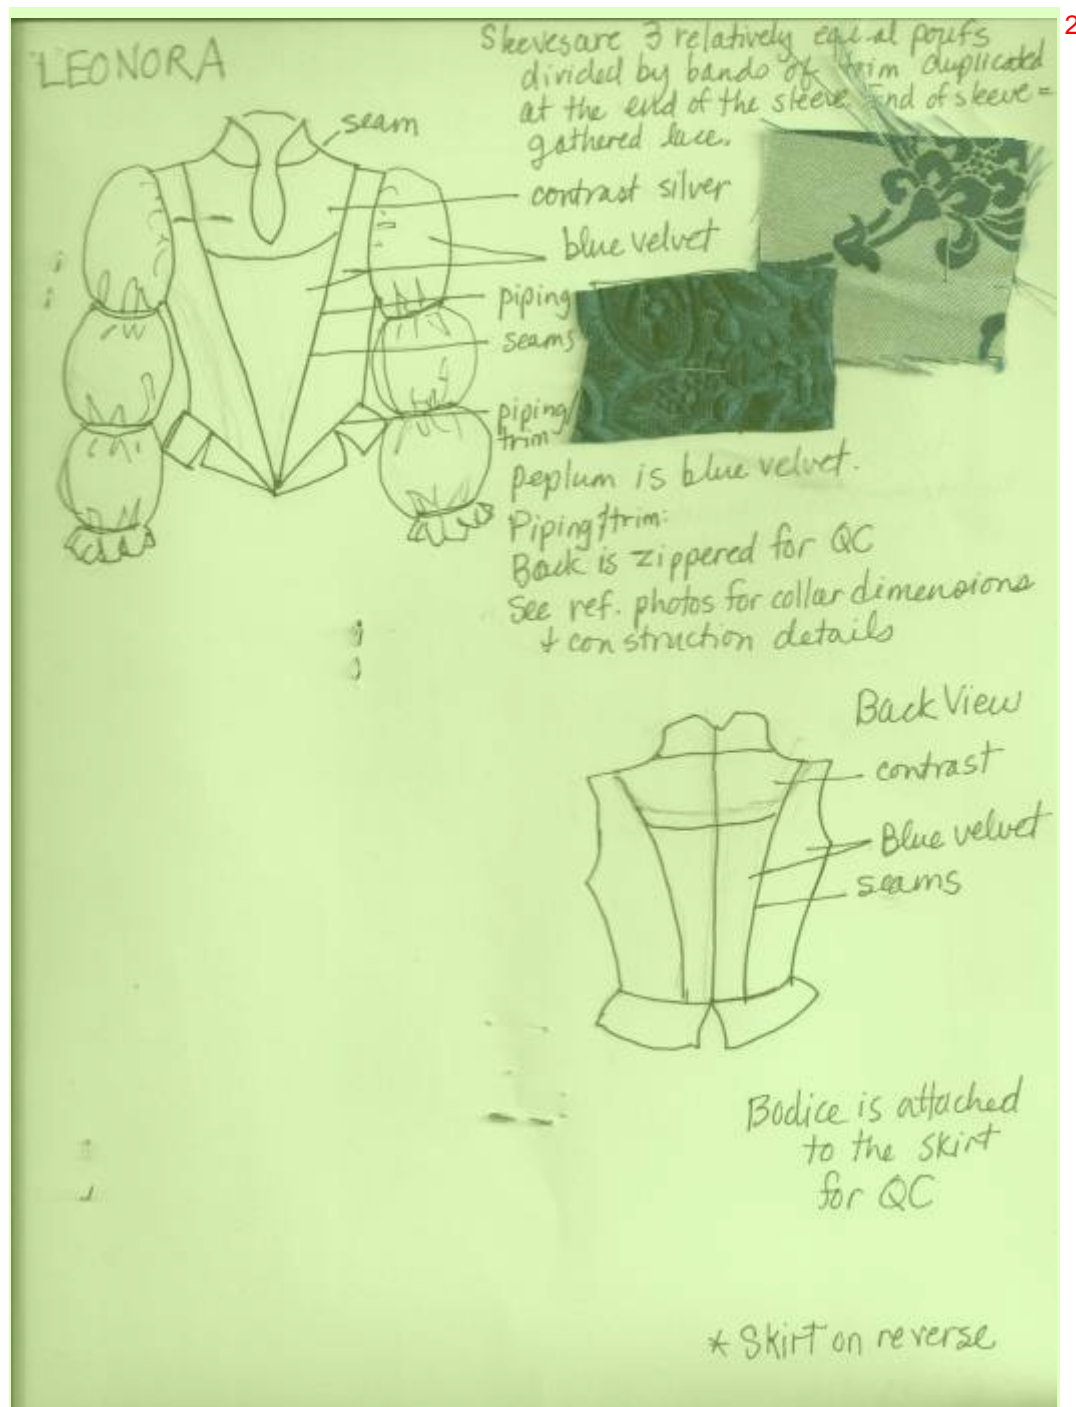 2
LEONORA
Sleeves are 3 relatively equal poufs
divided by bands of trim duplicated
at the end of the sleeve. End of sleeve =
gathered lace.
seam
contrast silver
blue velvet
piping
seams
piping/
trim
Peplum is blue velvet.
Piping/trim:
Back is zippered for QC
See ref. photos for collar dimensions
+ construction details
Back View
contrast
Blue velvet
seams
Bodice is attached
to the skirt
for QC
* Skirt on reverse